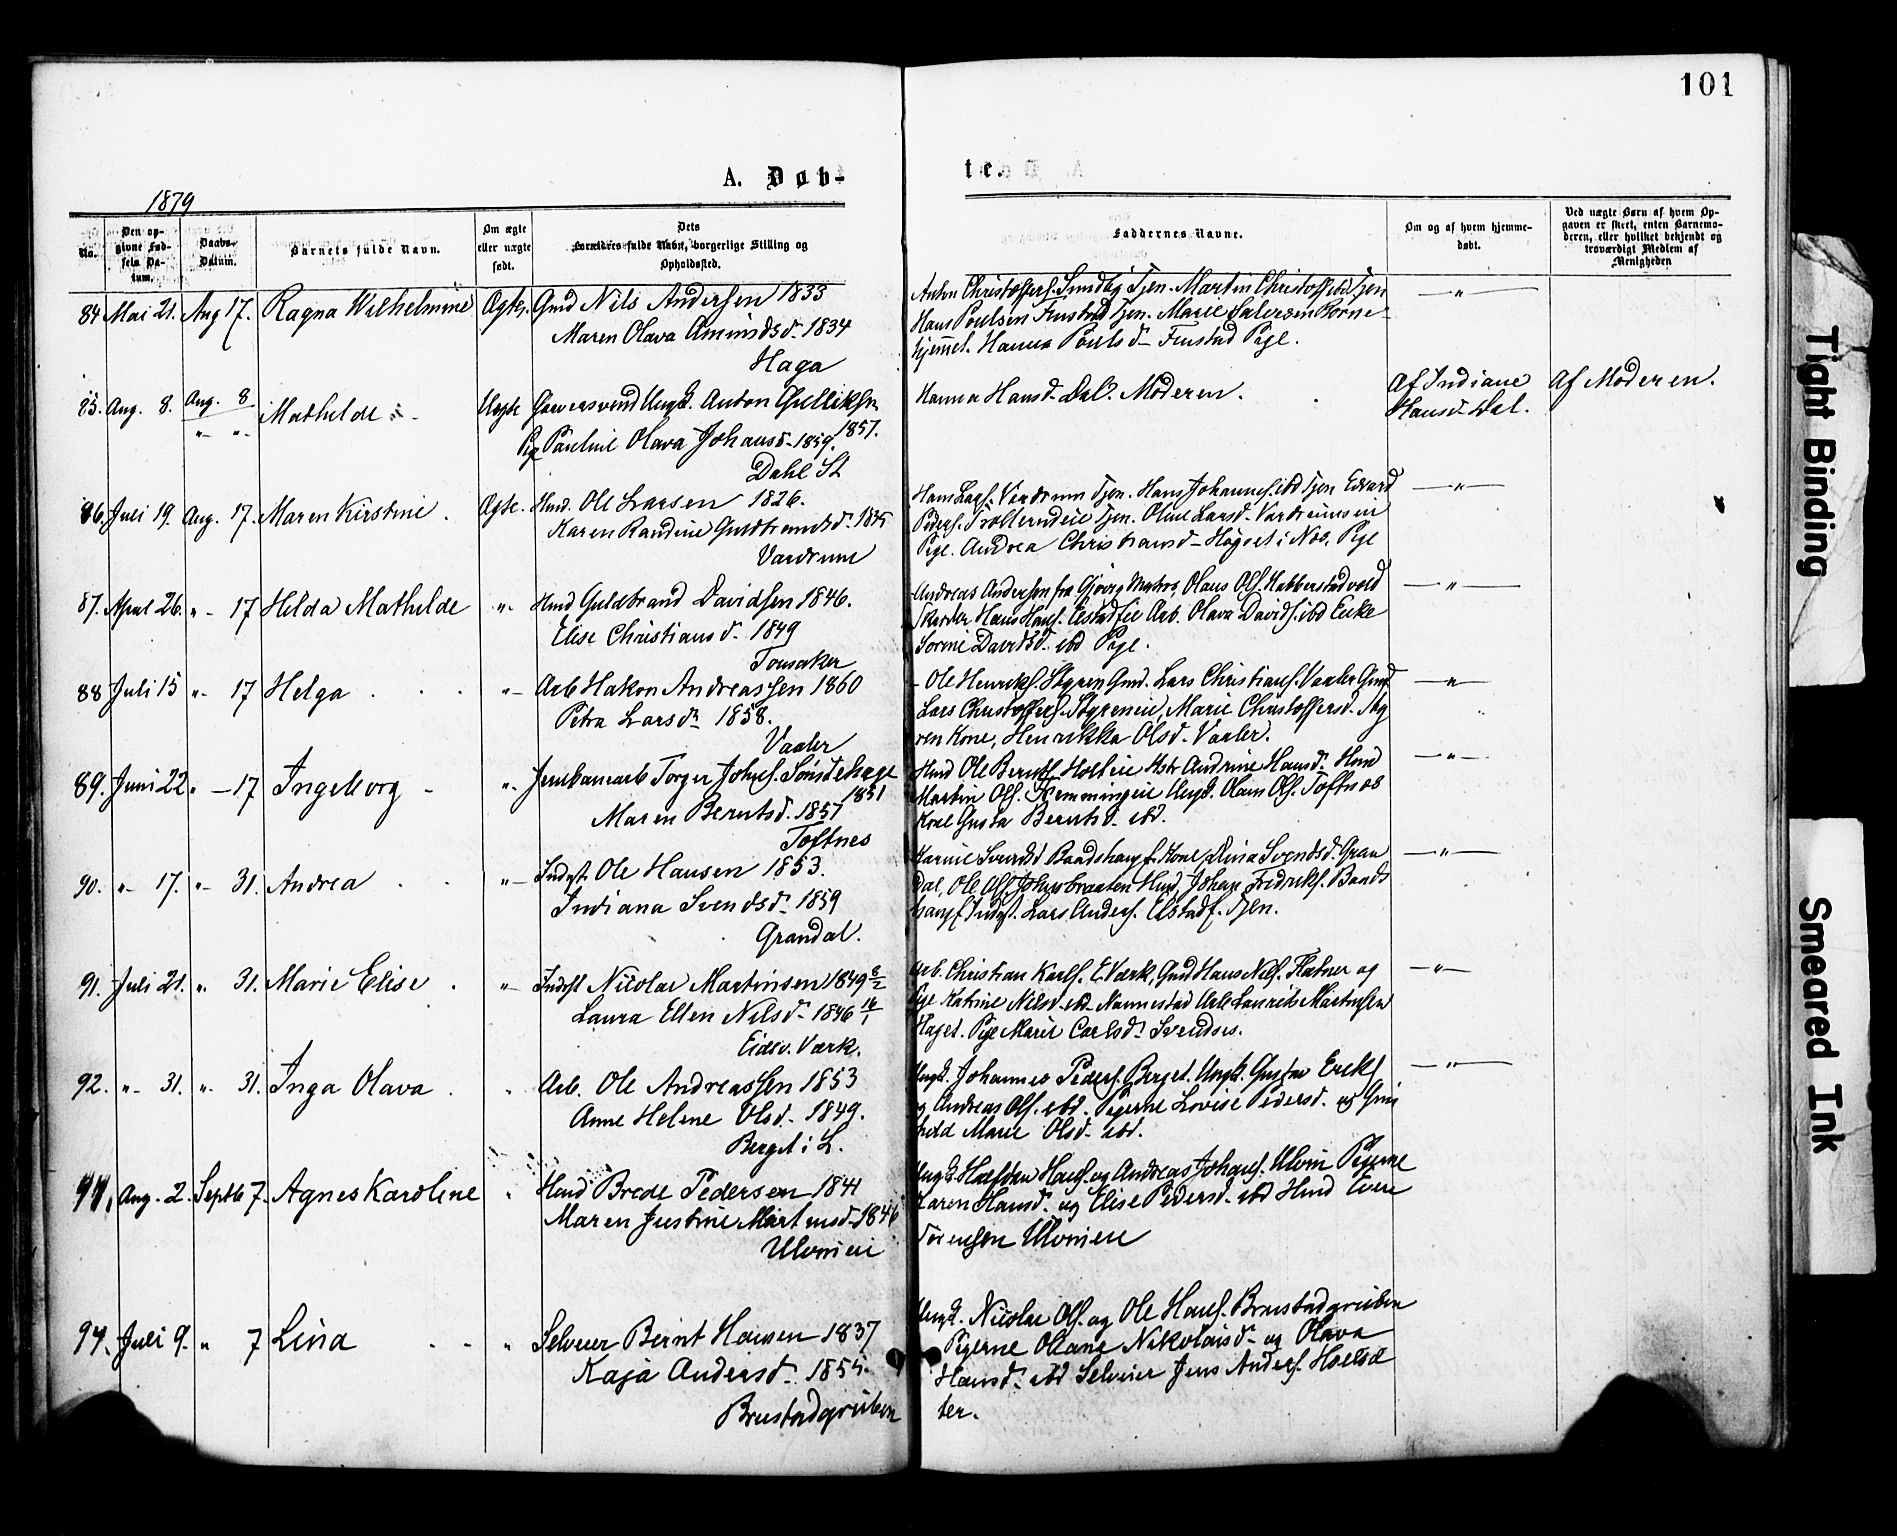 101
A. Døb-
te.
1879
No.
Den op-
givne Fød-
sels Da-
tum.
Daabs-
Datum.
Barnets fulde Navn.
Om ægte
eller uægte
født.
Dets
Forældres fulde Navn, borgerlige Stilling og
Opholdssted.
Faddernes Navne.
Om og af hvem hjemme-
døbt.
Ved uægte Børn af hvem Op-
gaven er skeet, enten Barnemo-
deren, eller hvilket bekjendt og
troværdigt Medlem af
Menigheden
84 Mai 21. Aug 17. Ragna Wilhelmine Ægte. Gmd Nils Andersen 1833
Maren Olava Amunds d. 1834
Haga
Anton Christoffers. Tjen. Martin Christoffers. ibd Tjen
Hans Poulsen Finstad Tjen. Marie Halvorsen Kone
hjemmet. Hanna Pouls d. Finstad Pige.
— " —
85. Aug. 8. Aug. 8 Mathilde Uægte Garversvend Ungk. Anton Gulliksn
" "
1857.
Pige Pauline Olava Johans d. 1859.
Dahl St
Hanna Hansd. Dal. Moderen.
Af Indiane
Hansd. Dal.
Af Moderen.
86. Juli 19. Aug. 17. Maren Kirstine Ægte. Hmd. Ole Larsen 1826.
Karen Randine Guldbrandsd. 1835
Vardrum
Hans Lars. Vardrum Tjen. Hans Johannes. ibd Tjen Edvard
Peders. Tjen. Oline Larsd. Vardrumsen
Pige. Andrea Christiansd. Høgset i Næs. Pige
— " —
87. April 26. " 17 Helda Mathilde " Hmd Guldbrand Davidsen 1846.
Elise Christians d. 1849
Tonsaker
Andreas Andersen fra Gjøvig Matros, Olaus Ols. Habberstadvold
Skrædder Hans Hans. Arb. Olava Davids. ibd Enke
Sorine Davidsd. ibd Pige.
— " —
88 Juli 15 " 17 Helga " Arb Hakon Andreassen 1860
Petra Lars d. 1858.
Vaaler
Ole Henriks. Styren Gmd. Lars Christians. Vaaler Gmd
Lars Christoffers. Styreneie, Marie Christoffersd. Sty
ren Kone, Henrikka Olsd. Vaaler.
— " —
89. Juni 22 " 17 Ingeborg " Jernbanearb Torger Johs. Sønstehage
1851
Maren Berntsd. 1857
Toftnes
Hmd Ole Bernts. Holteie Hstr Andrine Hansd. Hmd
Martin Ols. Hemmingeie Ungk. Olaus Ols. Toftnes
Kone Gusta Berntsd. ibd.
— " —
90. " 17. " 31. Andrea " Indst. Ole Hansen 1853.
Indiana Svendsd. 1859
Grandal.
Karine Svendsd Baadshaug Kone, Elina Svendsd. Gran
dal, Ole Ols. Johnsbraaten Hmd, Johan Fredriks. Baads
haug Indst. Lars Anders. Elstad. Tjen.
— " —
91. Juli 21. " 31. Marie Elise " Indst Nicolai Martinsen 1849 8/2
Laura Ellen Nilsd. 1846 16/1
Eidsv. Værk.
Arb. Christian Karls. E. Værk, Gmd Hans Nils. Flatner og
Pge Katrine Nilsd. ibd. Nannestad Arb Laurits Martinsen
Haget. Pige Marie Carlsd.
— " —
92. " 31. " 31. Inga Olava " Arb. Ole Andreassen 1853
Anne Helene Olsd. 1849.
Berget i L.
Ungk. Johannes Peders. Berget. Ungk. Gustav Eriks
og Andreas Ols. ibd. Pigerne Lovise Pedersd. og Gun
hild Marie Olsd. ibd.
— " —
Aug. 2 Septb 7. Agnes Karoline " Hmd Brede Pedersen 1841
Maren Justine Martinsd. 1846
Ulvineie
Ungk. Halfdan Hans. og Andreas Johans. Ulvin Pigerne
Karen Hansd. og Elise Pedersd. ibd Hmd Even
Sørensen Ulvineie
94. Juli 9. " 7 Lina " Selveier Bernt Hansen 1837
Kaja Andersd. 1855.
Brustadgruben
Ungk. Nicolai Ols. og Ole Hans. Brustadgruben
Pigerne Oliane Nikolaisd. og Olava
Hansd. ibd Selveier Jens Anders. Holsæ
ter.
Tight Binding
Smeared Ink